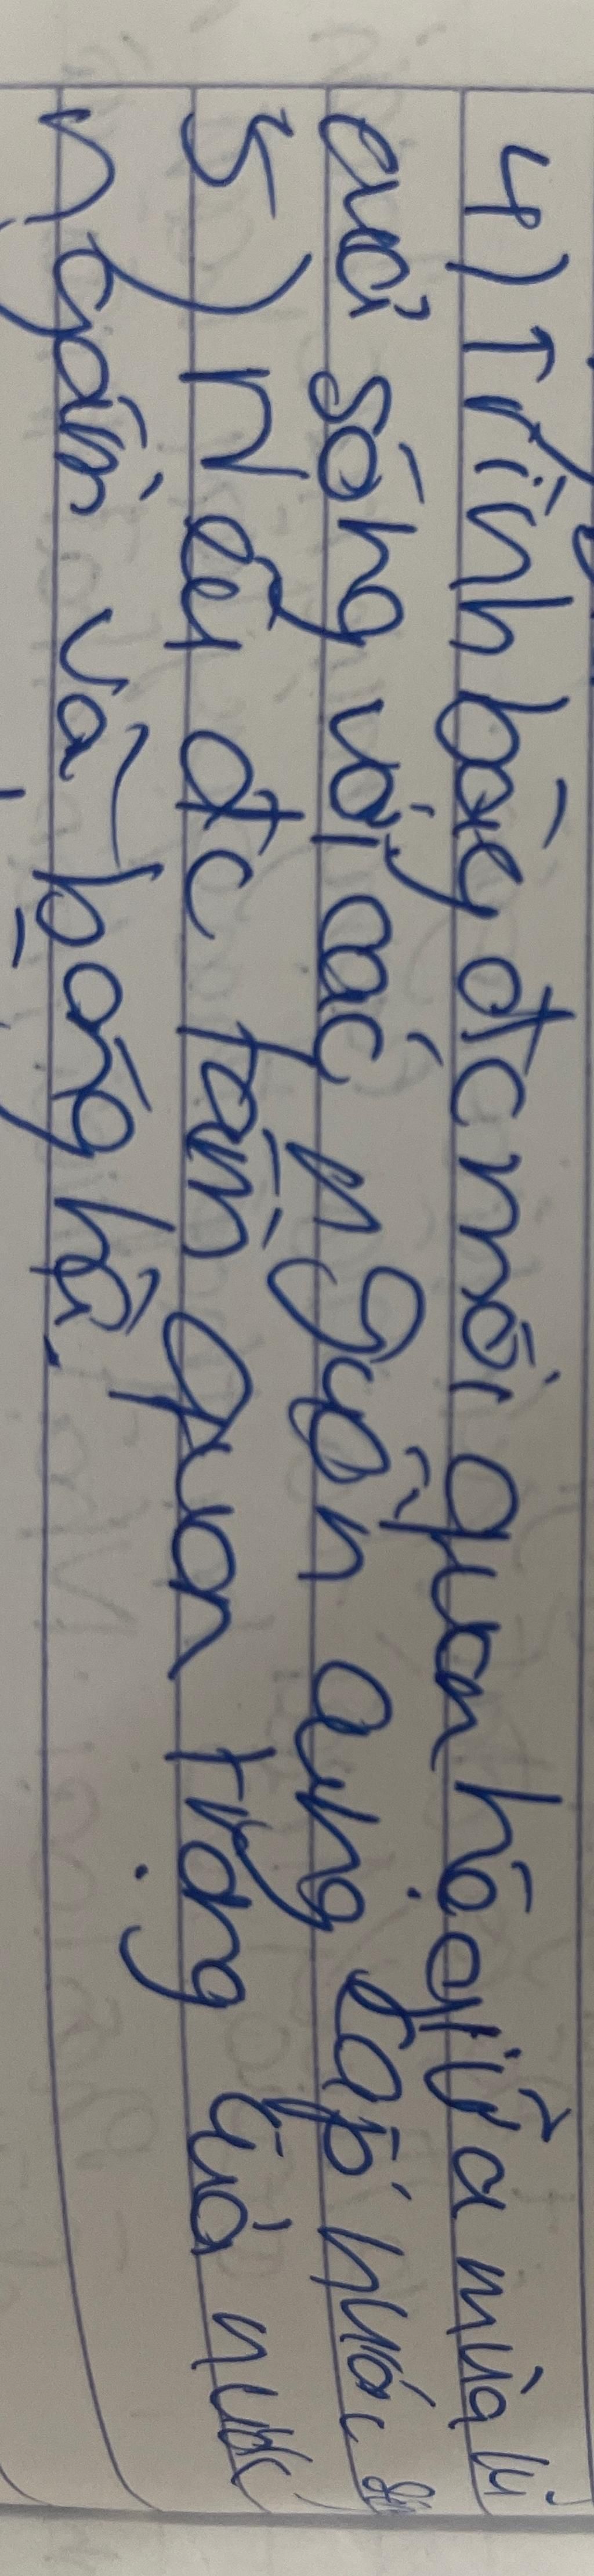 4) Trình bày đc mối quan hệ giữa mùa lũ
của sông với các nguồn cung cấp nước
5) Nêu đc tầm quan trọng của nước
ngầm và băng hà.